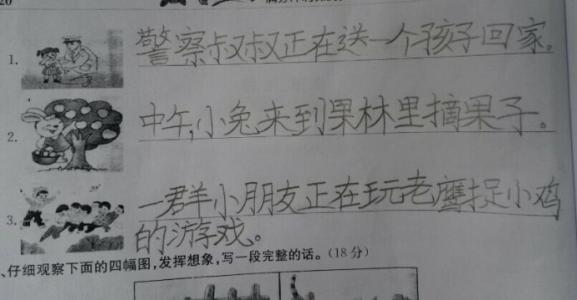 1. 警察叔叔正在送一个孩子回家。
2. 中午,小兔来到果林里摘果子。
3. 一群小朋友正在玩老鹰捉小鸡
的游戏。
、仔细观察下面的四幅图,发挥想象,写一段完整的话。(18分)